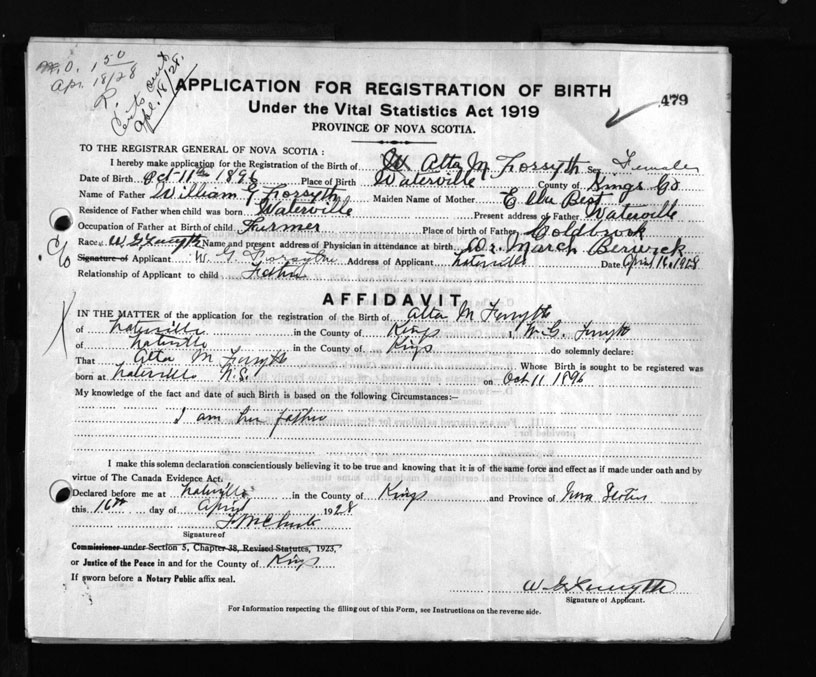 M.O. 1 50
Apr. 18/28
Cert. out
Apl. 18/28.
APPLICATION FOR REGISTRATION OF BIRTH
Under the Vital Statistics Act 1919
479
PROVINCE OF NOVA SCOTIA.
TO THE REGISTRAR GENERAL OF NOVA SCOTIA :
I hereby make application for the Registration of the Birth of Alta M Forsyth Sex Female
Date of Birth Oct-11th 1896 Place of Birth Waterville County of Kings Co
Name of Father William G Forsyth Maiden Name of Mother Ella Best
Residence of Father when child was born Waterville Present address of Father Waterville
Occupation of Father at Birth of child Farmer Place of birth of Father Coldbrook
Race W G Forsyth Name and present address of Physician in attendance at birth Dr. March Berwick
Signature of Applicant W. G Forsythe Address of Applicant Waterville Date April 16, 1928
Relationship of Applicant to child Father
AFFIDAVIT
IN THE MATTER of the application for the registration of the Birth of Alta M Forsyth
of Waterville in the County of Kings I W. G. Forsyth
of Waterville in the County of Kings do solemnly declare:
That Alta M Forsyth Whose Birth is sought to be registered was
born at Waterville N.S. on Oct 11 1896
My knowledge of the fact and date of such Birth is based on the following Circumstances:—
I am her father
I make this solemn declaration conscientiously believing it to be true and knowing that it is of the same force and effect as if made under oath and by
virtue of The Canada Evidence Act.
Declared before me at Waterville in the County of Kings and Province of Nova Scotia
this 16th day of April 1928
Signature of
Commissioner under Section 5, Chapter 38, Revised Statutes, 1923,
or Justice of the Peace in and for the County of Kings
If sworn before a Notary Public affix seal.
W G Forsyth
Signature of Applicant.
For Information respecting the filling out of this Form, see Instructions on the reverse side.